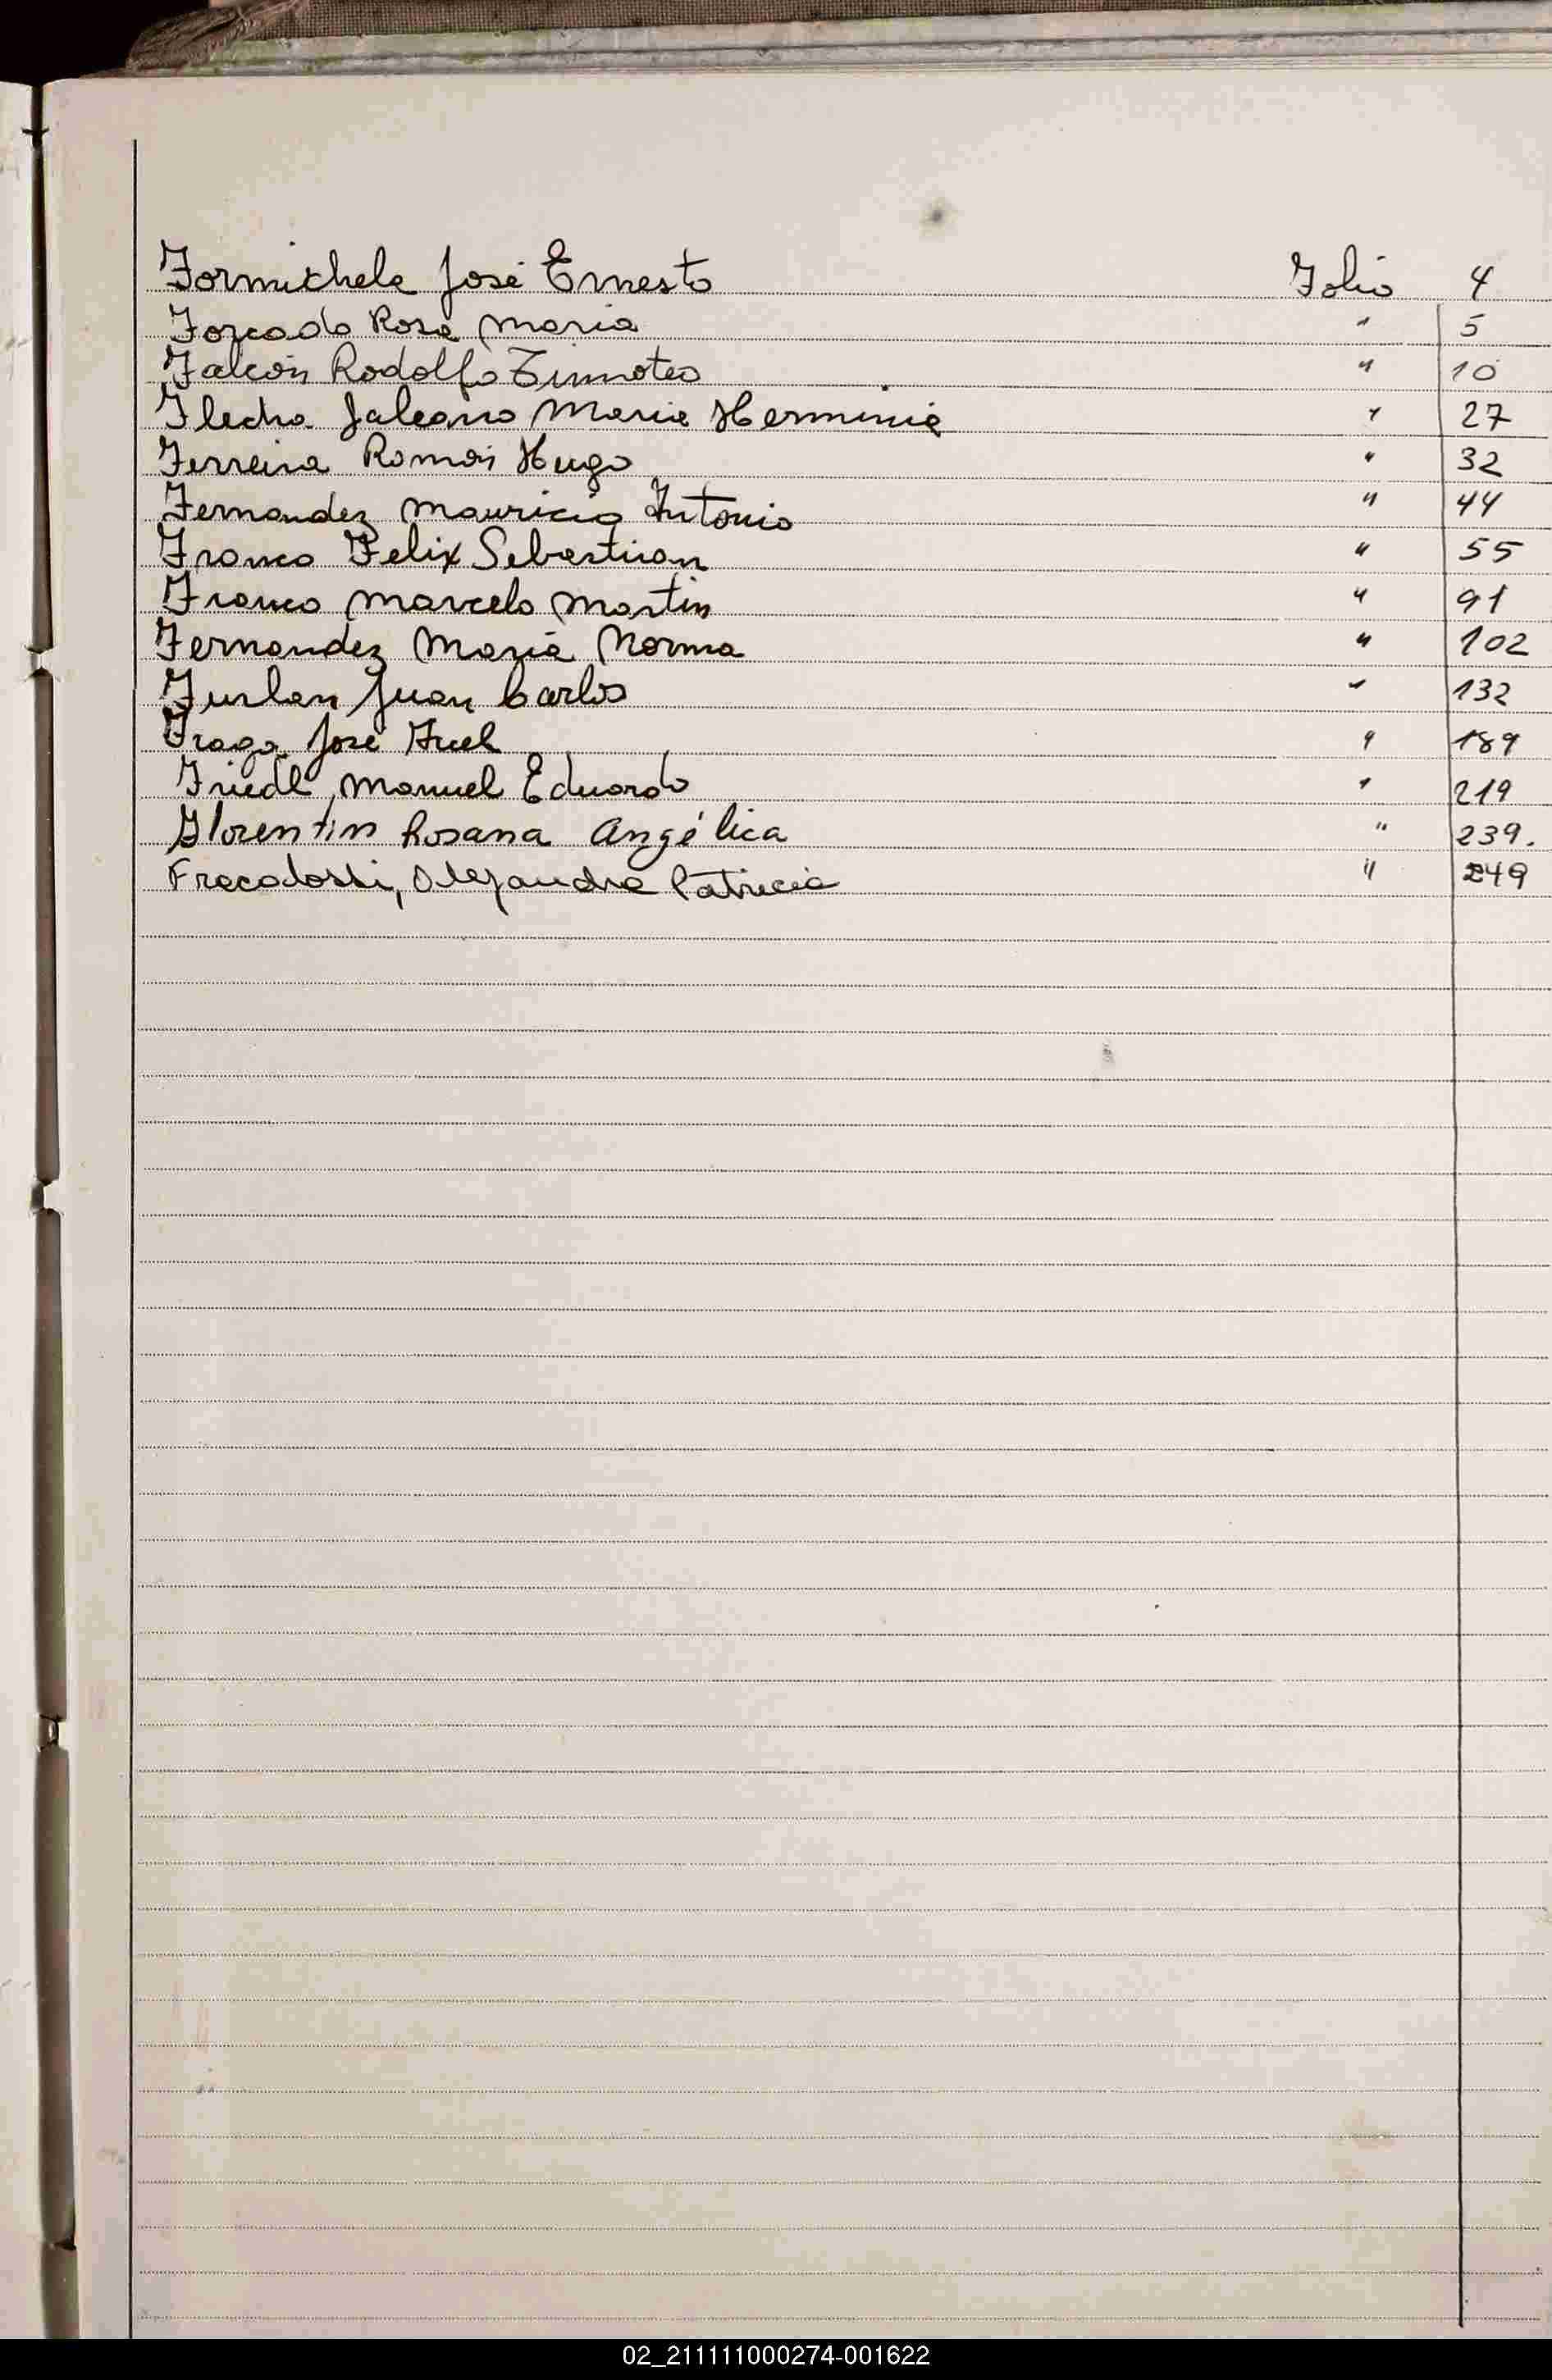 Formichele José Ernesto Folio 4
Forcado Rosa Maria " 5
Falcón Rodolfo Timoteo " 10
Flecha Galeano Maria Herminia " 27
Ferreira Román Hugo " 32
Fernandez Mauricio Antonio " 44
Franco Felix Sebastian " 55
Franco Marcelo Martin " 91
Fernandez Maria Norma " 102
Furlan Juan Carlos " 132
Fraga José Axel " 189
Friedl, Manuel Eduardo " 219
Florentin Rosana Angélica " 239.
Fracalossi, Alejandra Patricia " 249
02_211111000274-001622